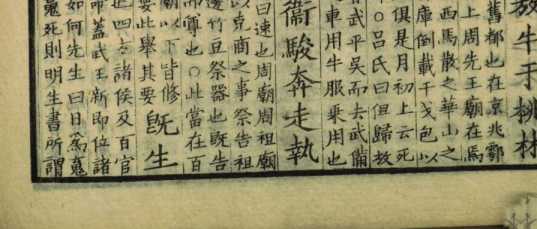 放牛于桃林
舊都也在京兆鄠
上周先王廟在焉
西馬散之華山之
庫倒載干戈包以
俱是月初上云死
○呂氏曰但歸放
武平吳而去武備
車用牛服乗用也
衛駿奔走執
曰速也周廟周祖廟
以克商之事祭告祖
邊竹豆祭器也既告
而尊也○此當在百
以下皆修
要此舉其要
既生
也四方諸侯及百官
命蓋武王新即位諸
如何先生曰日爲䰟
魄死則明生書所謂